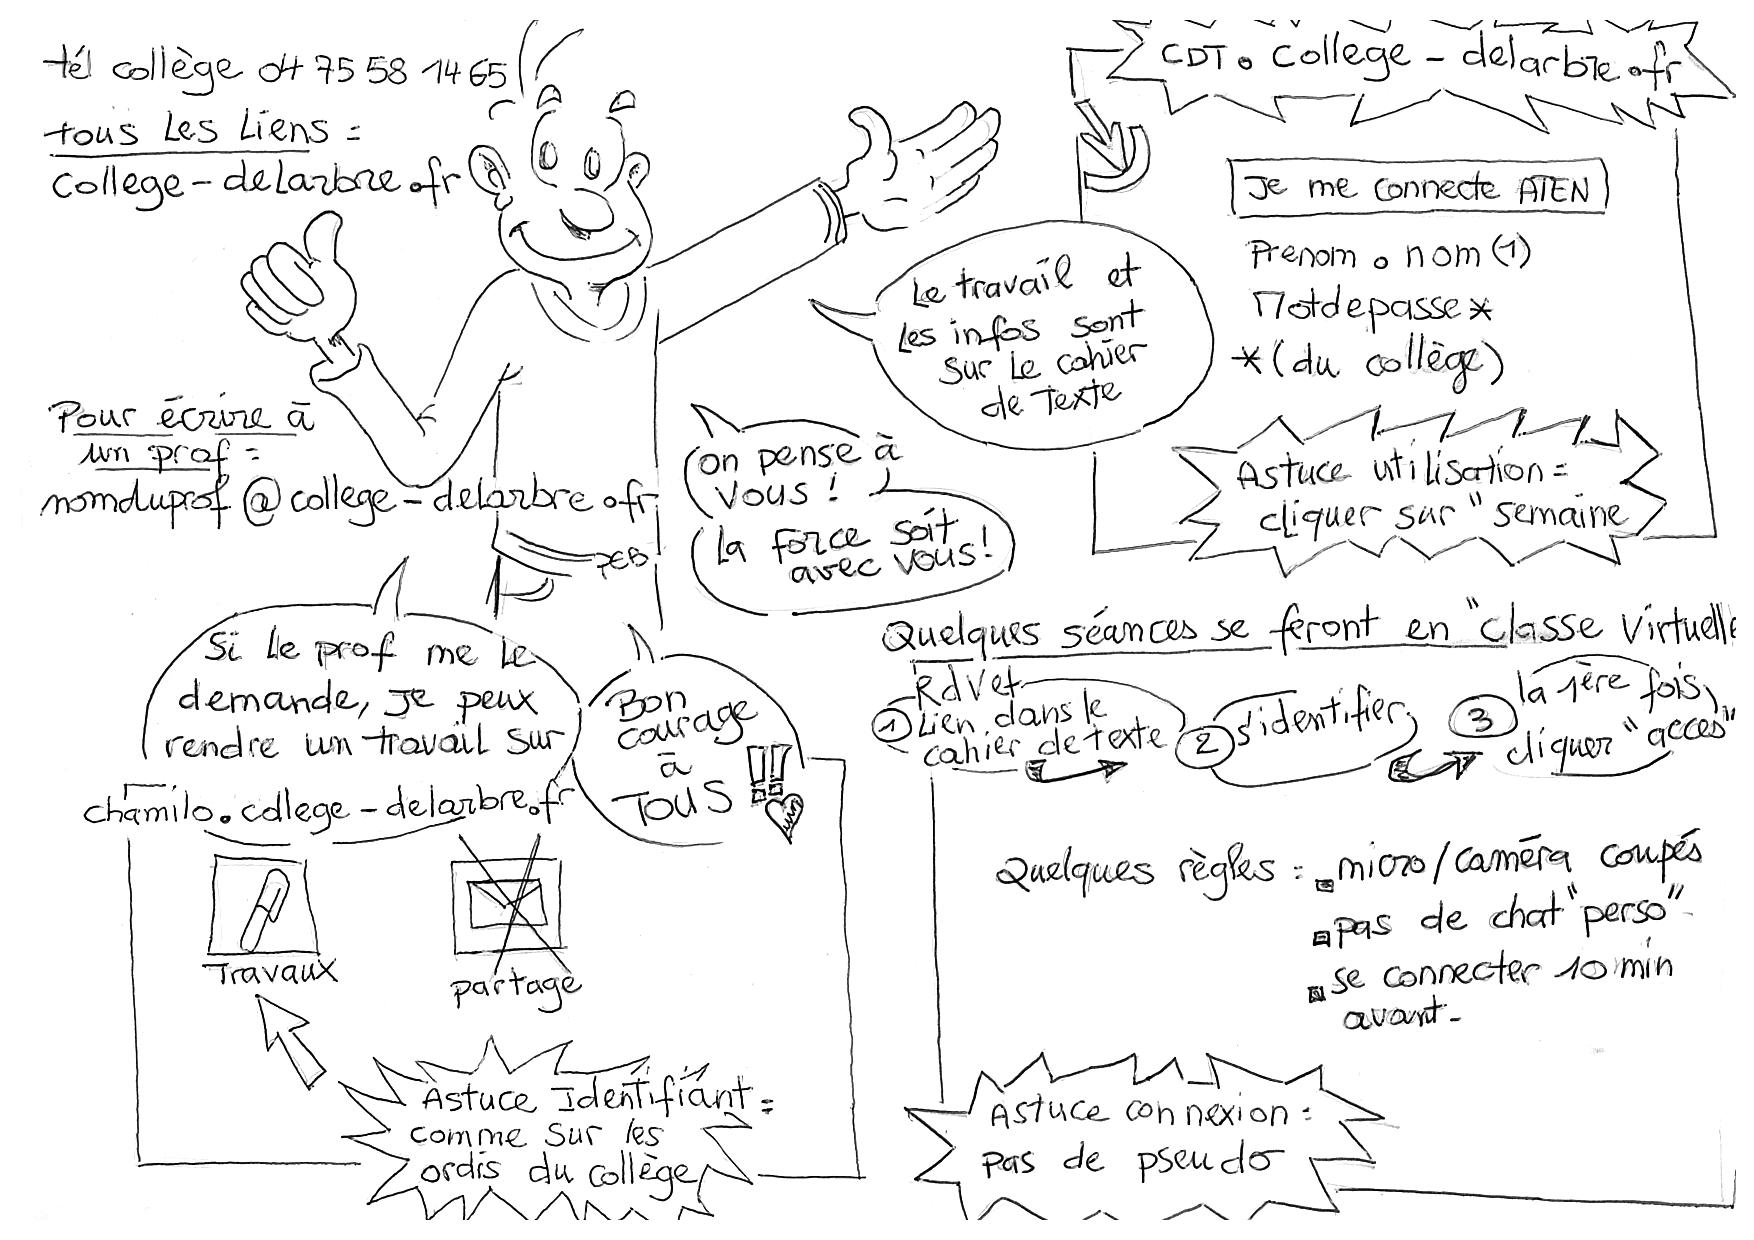 tél collège 04 75 58 14 65
tous les liens :
college-delarbre.fr
Pour écrire à
un prof :
nomduprof@college-delarbre.fr
CDT.college-delarbre.fr
Je me connecte ATEN
Prenom.nom(1)
Motdepasse*
*(du collège)
Le travail et
les infos sont
sur le cahier
de texte
Astuce utilisation :
cliquer sur "semaine
on pense à
vous !
la force soit
avec vous !
PEB
Si le prof me le
demande, je peux
rendre un travail sur
chamilo.college-delarbre.fr
Bon
courage
à
TOUS !!
Travaux
partage
Astuce Identifiant :
comme sur les
ordis du collège
Quelques séances se feront en "classe virtuelle
RdVet
1 Lien dans le
cahier de texte
2 s'identifier
3 la 1ère fois,
cliquer "acces"
Quelques règles : micro/caméra coupés
pas de chat "perso"
se connecter 10 min
avant-
Astuce connexion :
pas de pseudo